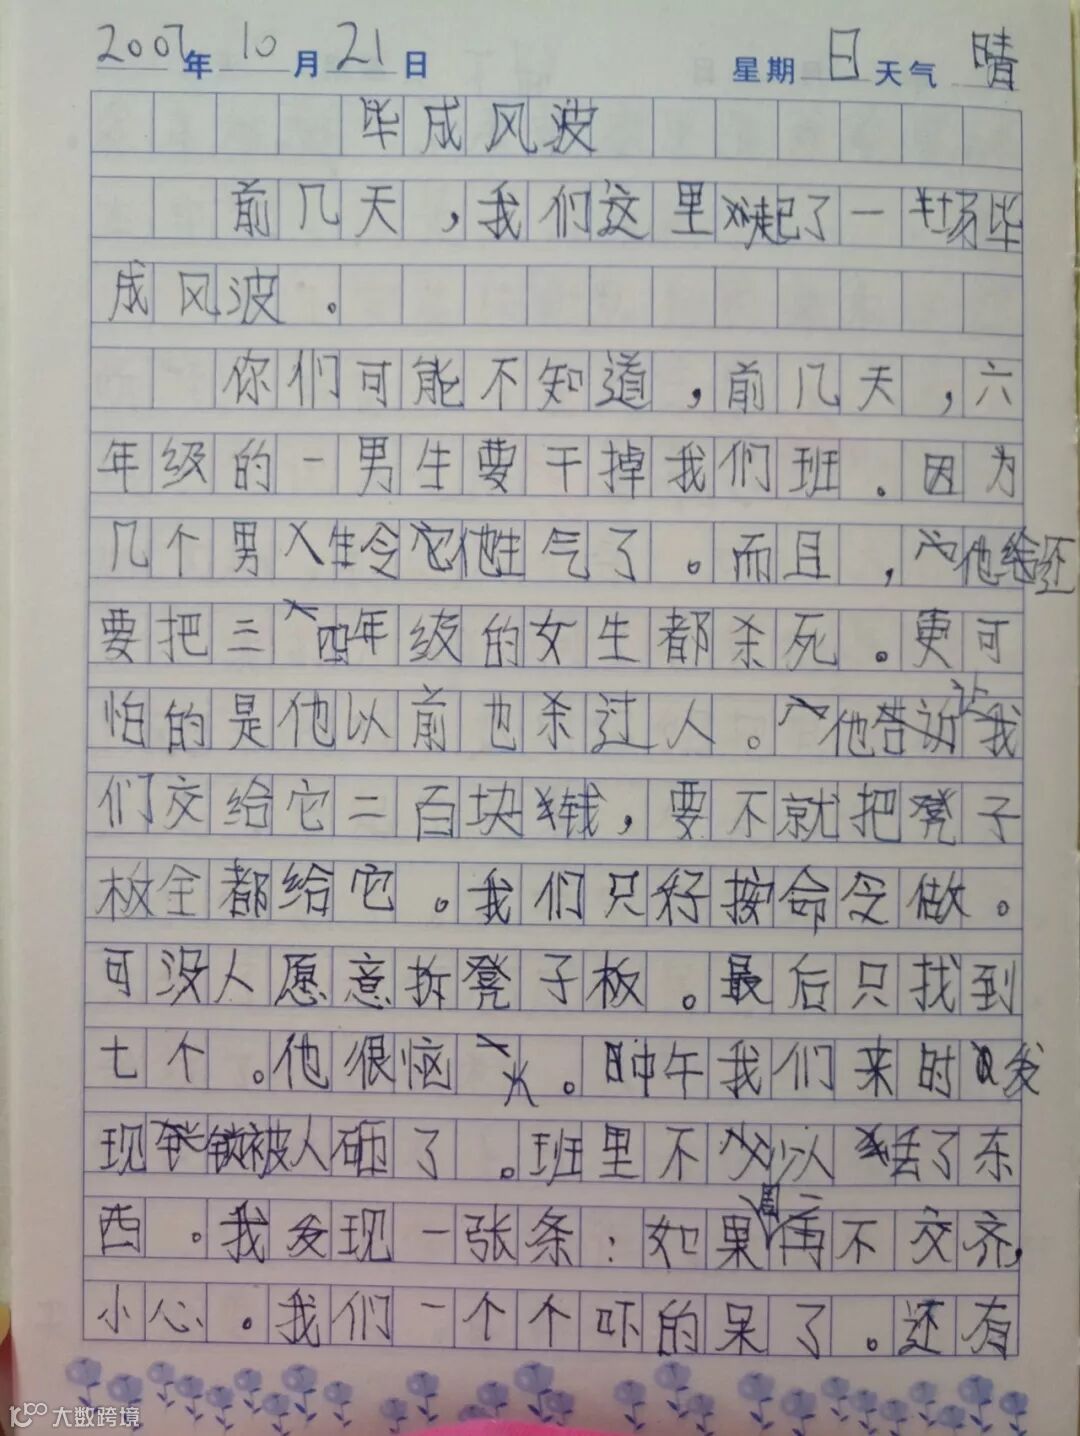 2007年10月21日 星期日天气晴
毕成风波
前几天，我们这里起了一场毕
成风波。
你们可能不知道，前几天，六
年级的一男生要干掉我们班。因为
几个男生令他生气了。而且，他还
要把三四年级的女生都杀死。更可
怕的是他以前也杀过人。他告诉让我
们交给它二百块钱，要不就把凳子
板全都给它。我们只好按命令做。
可没人愿意拆凳子板。最后只找到
七个。他很恼火。中午我们来时发
现锁被人砸了。班里不少以丢了东
西。我发现一张条：如果周二再不交齐，
小心。我们一个个吓的呆了。还有
大数跨境